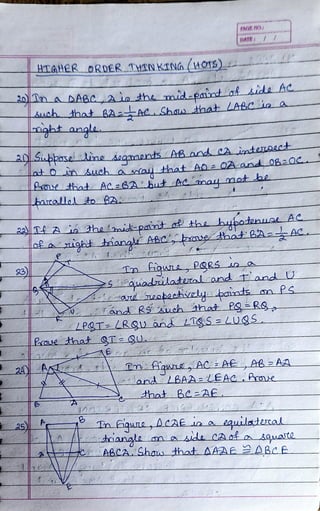 PAGE NO.:
DATE: / /
HIGHER ORDER THINKING (HOTS)
20) In a ΔABC, D is the mid-point of side AC
such that BD = 1/2 AC. Show that ∠ABC is a
right angle.
21) Suppose line segments AB and CD intersect
at O in such a way that AO = OD and OB = OC.
Prove that AC = BD but AC may not be
parallel to BD.
22) If D is the mid-point of the hypotenuse AC
of a right triangle ABC, prove that BD = 1/2 AC.
23) In Figure, PQRS is a
quadrilateral and T and U
are respectively points on PS
and RS such that PQ = RQ,
∠PQT = ∠RQU and ∠TQS = ∠UQS.
Prove that QT = QU.
24) In Figure, AC = AE, AB = AD
and ∠BAD = ∠EAC. Prove
that BC = DE.
25) In Figure, ΔCDE is a equilateral
triangle on a side CD of a square
ABCD. Show that ΔADE ≅ ΔBCE
P
S
R
U
A
E
B
D
C
A
B
D
C
E